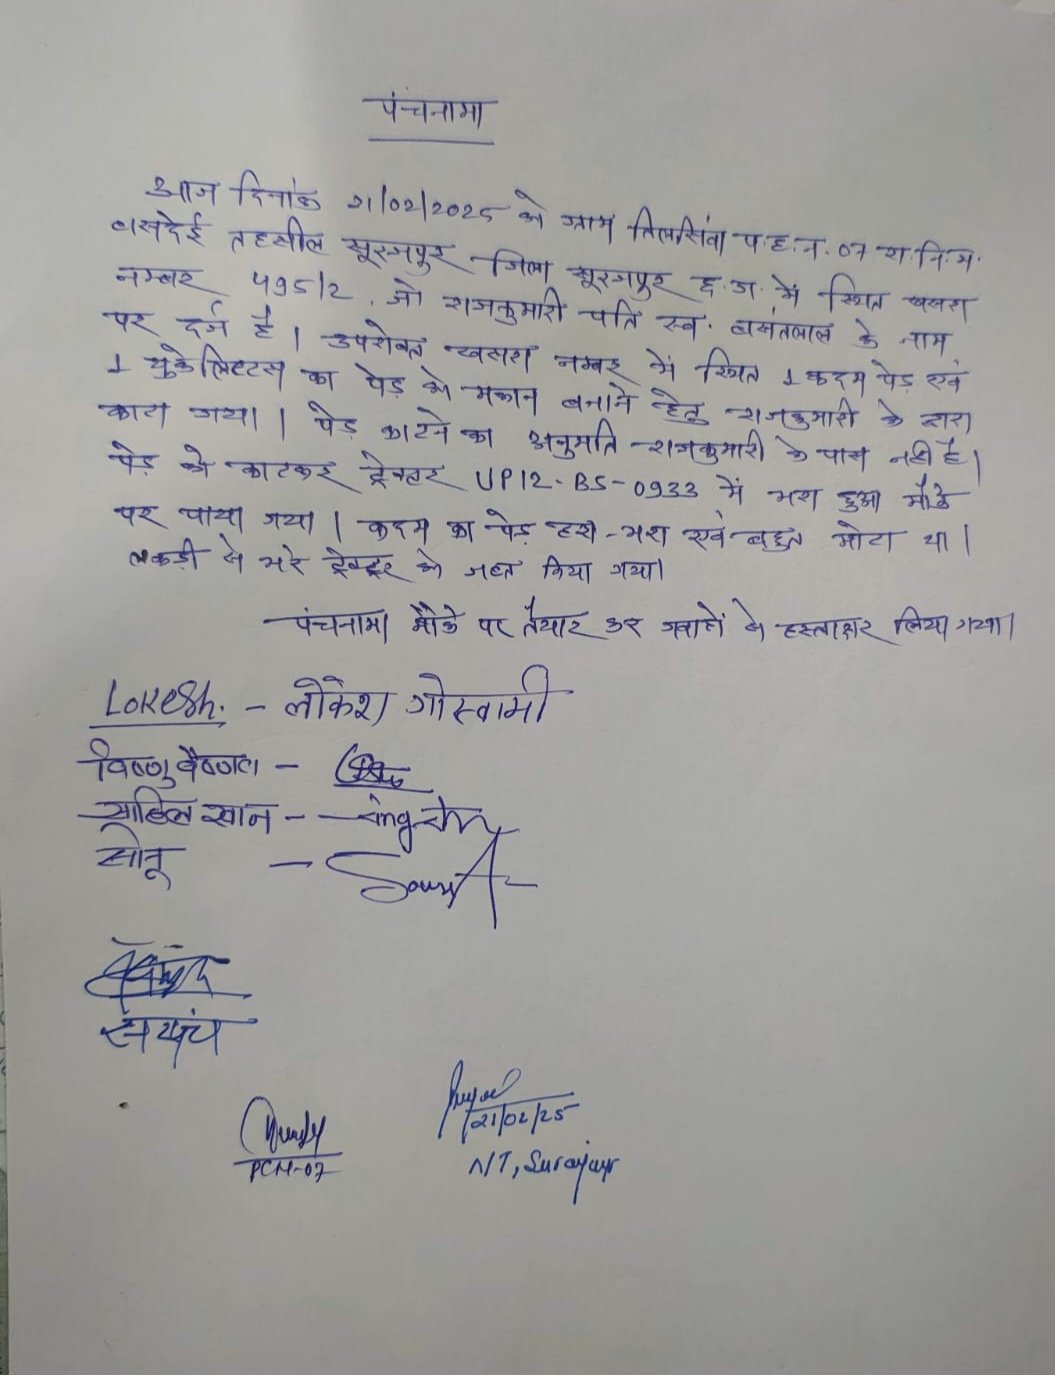 पंचनामा
आज दिनांक 21/02/2025 को ग्राम तिलसिंवा प.ह.न. 07 रा.नि.म.
बासदेई तहसील सूरजपुर जिला सूरजपुर छ.ग. में स्थित खसरा
नम्बर 495/2, जो राजकुमारी पति स्व. बसंतलाल के नाम
पर दर्ज है। उपरोक्त खसरा नम्बर में स्थित 1 कदम पेड़ एवं
1 युकेलिप्टस का पेड़ को मकान बनाने हेतु राजकुमारी के द्वारा
काटा गया। पेड़ काटने का अनुमति राजकुमारी के पास नहीं है।
पेड़ को काटकर ट्रेक्टर UP12-BS-0933 में भरा हुआ मौके
पर पाया गया। कदम का पेड़ हरा-भरा एवं बहुत मोटा था।
लकड़ी से भरे ट्रेक्टर को जप्त किया गया।
पंचनामा मौके पर तैयार कर गवाहों से हस्ताक्षर लिया गया।
Lokesh. - लोकेश गोस्वामी
विष्णु वैष्णव -
साहिल खान -
सोनू -
सरपंच
PCN-07
21/02/25
N/T, Surajpur